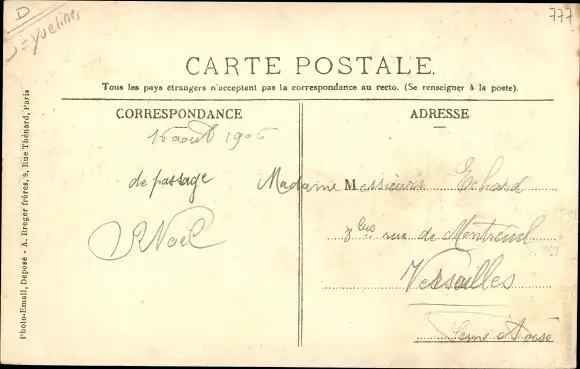 D
Yvelines
777
CARTE POSTALE.
Tous les pays étrangers n'acceptent pas la correspondance au recto. (Se renseigner à la poste).
CORRESPONDANCE
16 août 1906
de passage
Noël
ADRESSE
Madame Messieurs Echard
rue de Montreuil
Versailles
Seine & Oise
Photo-Email, Déposé - A. Breger frères, 9, Rue Thénard, Paris